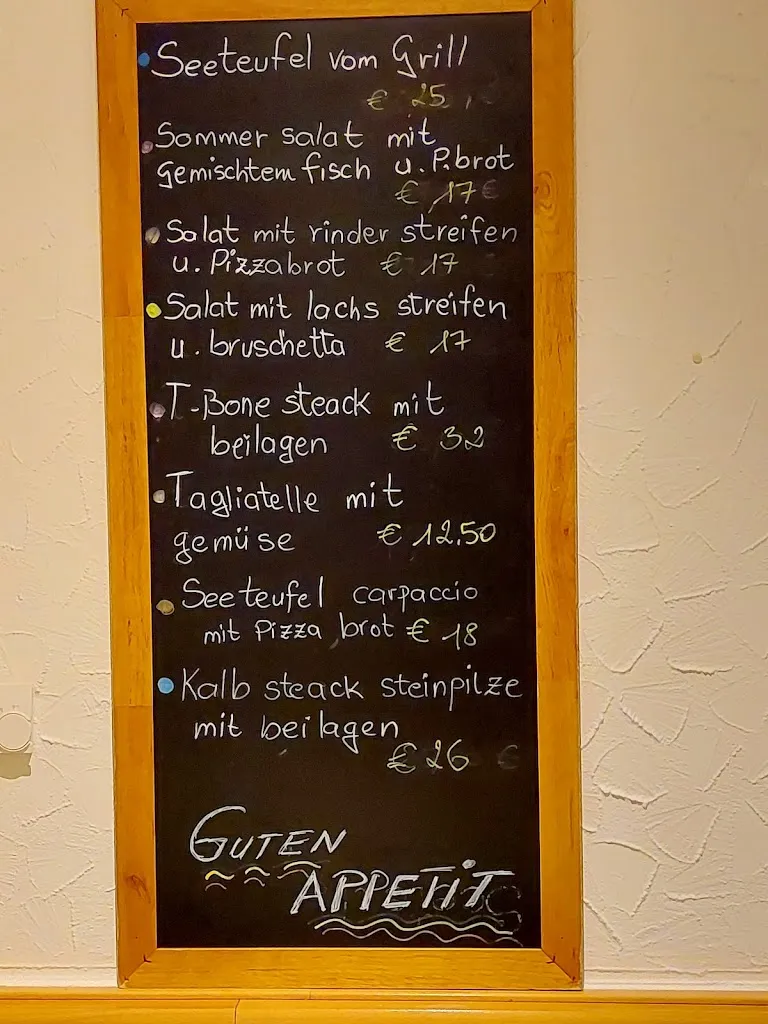 Seeteufel vom Grill
€ 25
Sommer salat mit
gemischtem fisch u. P.brot
€ 17
Salat mit rinder streifen
u. Pizzabrot € 17
Salat mit lachs streifen
u. bruschetta € 17
T-Bone steack mit
beilagen € 32
Tagliatelle mit
gemüse € 12.50
Seeteufel carpaccio
mit Pizza brot € 18
Kalb steack steinpilze
mit beilagen
€ 26
GUTEN
APPETIT